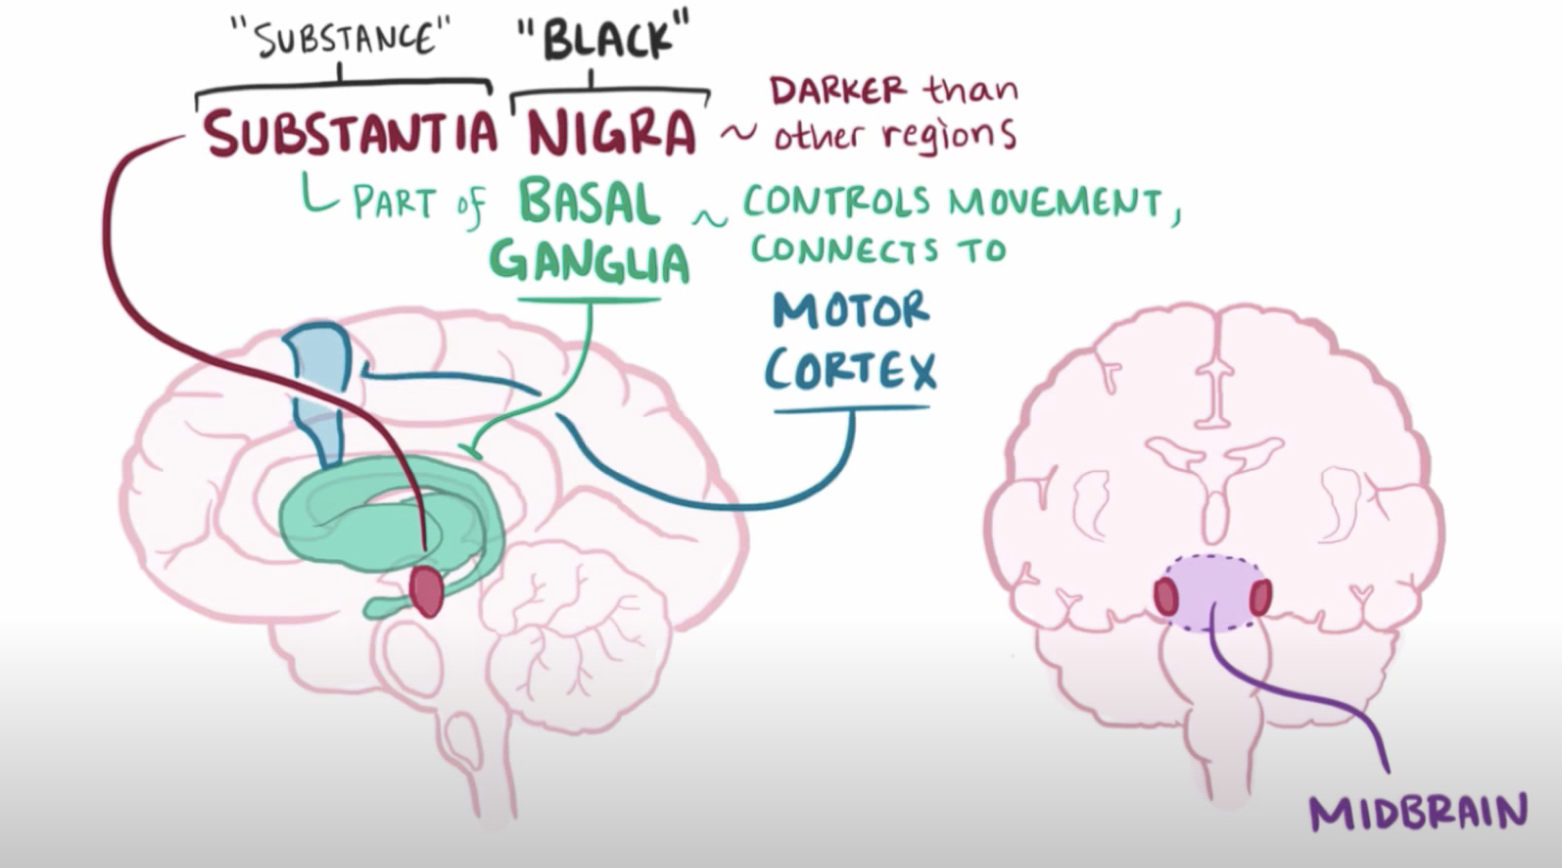 "SUBSTANCE" "BLACK"
SUBSTANTIA NIGRA ~ DARKER than
other regions
PART of BASAL
GANGLIA ~ CONTROLS MOVEMENT,
CONNECTS TO
MOTOR
CORTEX
MIDBRAIN